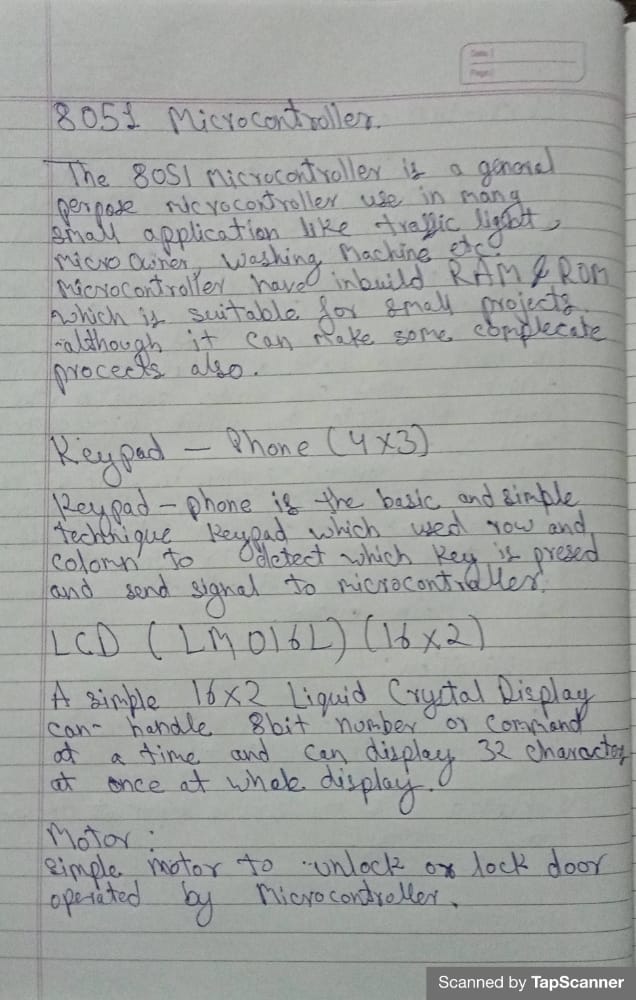 Date
Page
8051 Microcontroller.
The 8051 microcontroller is a general
perpose microcontroller use in many
small application like traffic light,
micro owner, washing machine etc.
Microcontroller have inbuild RAM & ROM
which is suitable for small projects.
although it can make some complecate
procects also.
Keypad – Phone (4x3)
Keypad – phone is the basic and simple
technique keypad which used row and
colomn to detect which key is presed
and send signal to microcontroller.
LCD (LM016L) (16x2)
A simple 16x2 Liquid Crystal Display
can handle 8bit number or command
at a time and can display 32 character
at once at whole display.
Motor :
simple motor to unlock or lock door
operated by Microcontroller.
Scanned by TapScanner